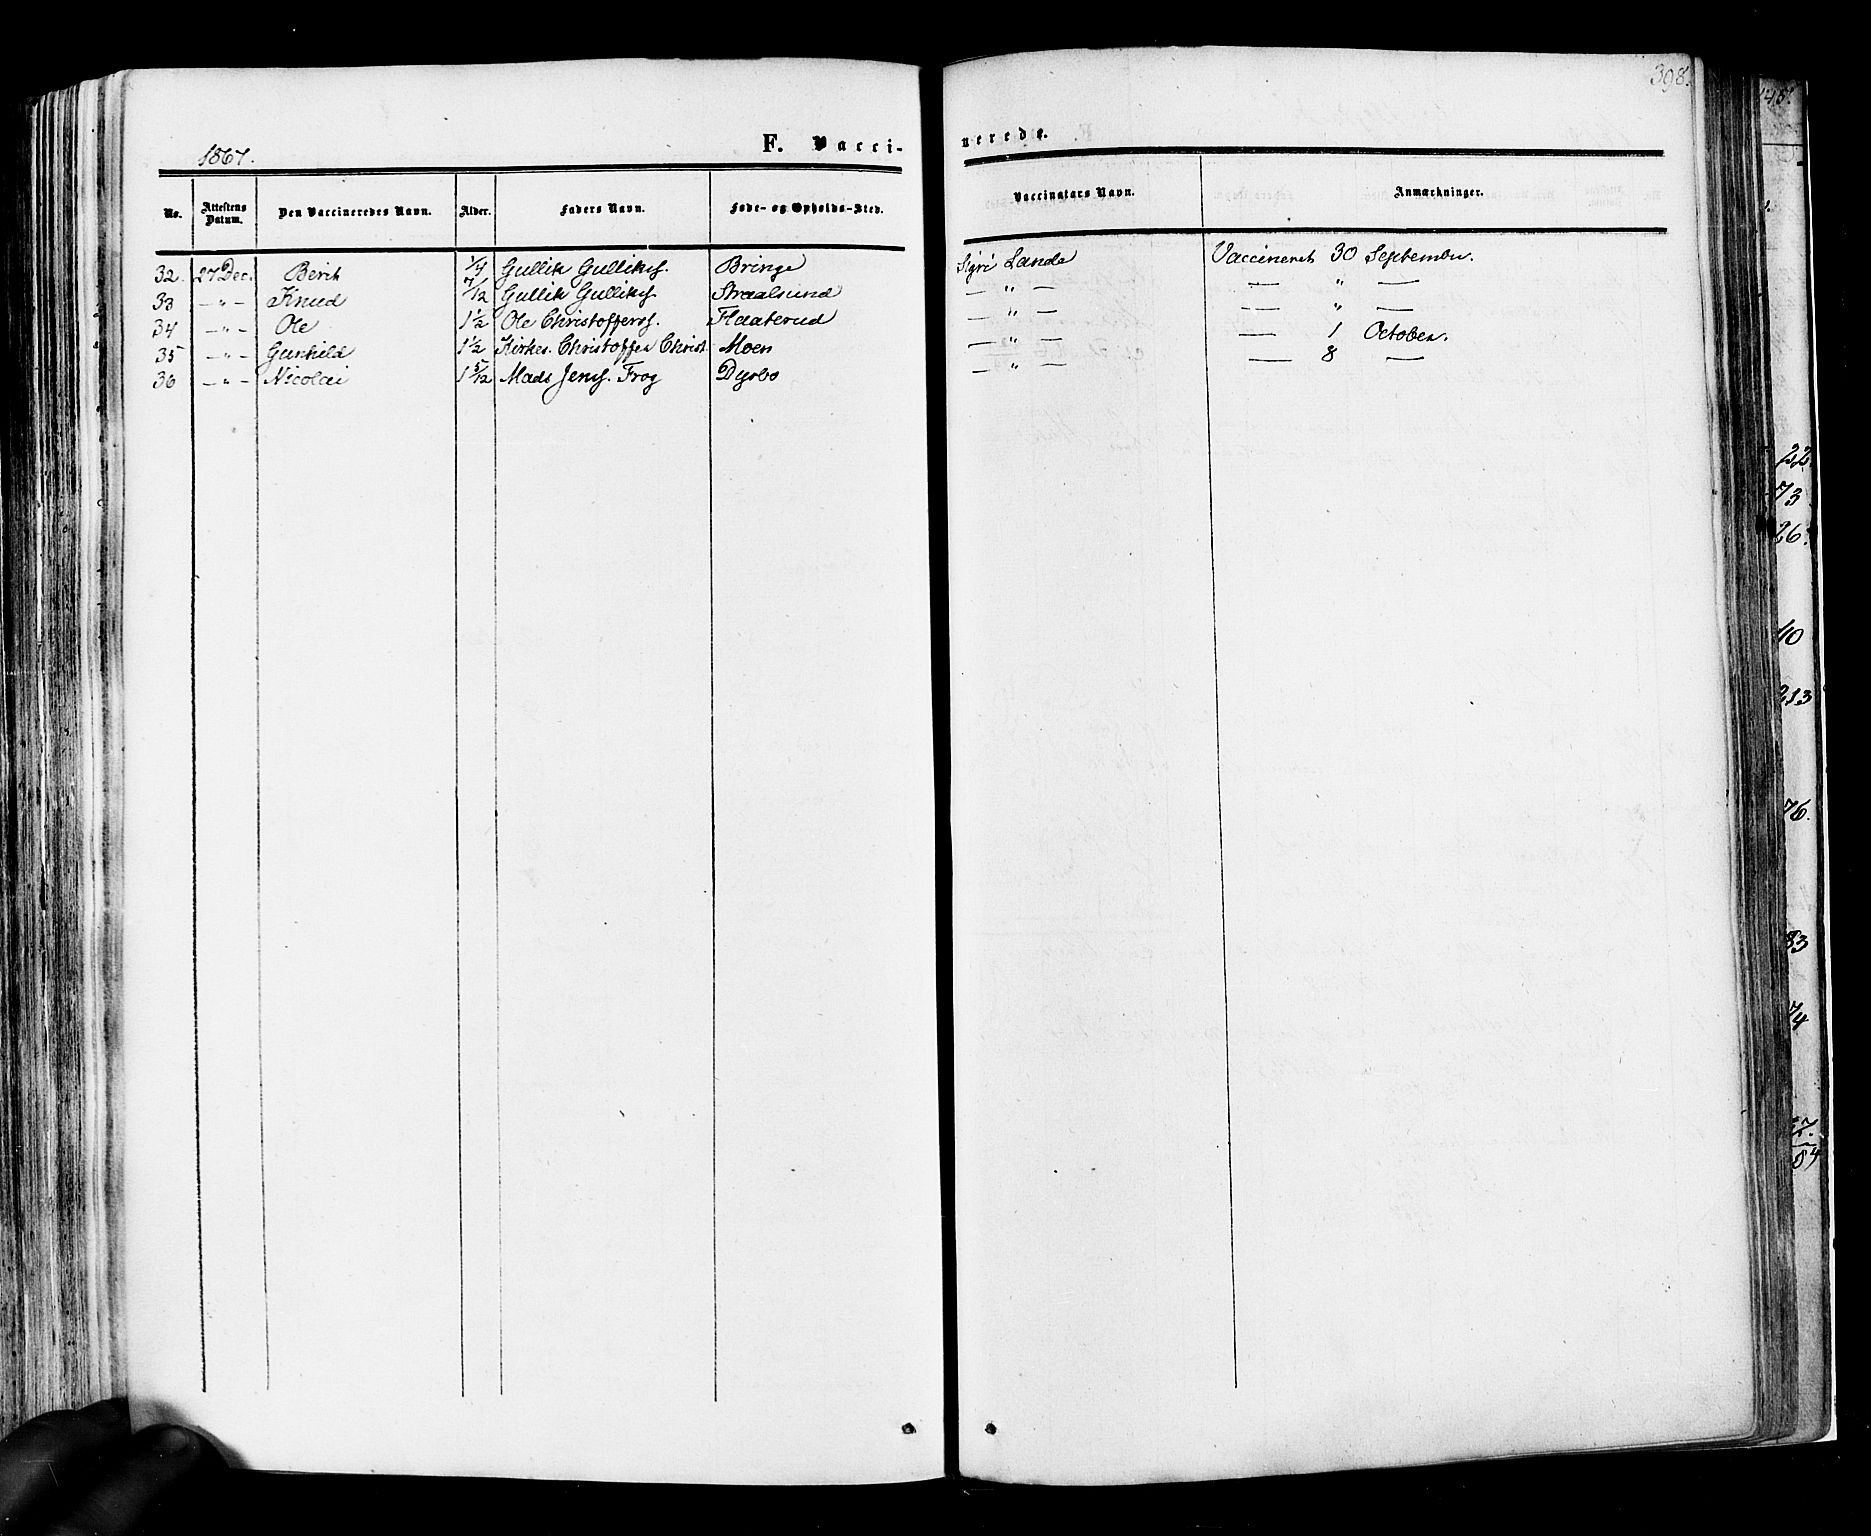 398.
1867.
F. Vacci-
nerede.
No. Attestens Datum. Den Vaccineredes Navn. Alder. Faders Navn. Føde- og Opholds-Sted. Vaccinatørs Navn. Anmærkninger.
32. 27 Dec. Berit 1/4 Gullik Gulliks. Bringe Sigri Lande Vaccineret 30 September.
33 — " — Knud 7/12 Gullik Gulliks. Straalsund — " — — " —
34 — " — Ole 1 1/2 Ole Christoffers. Flaaterud — " — — " —
35 — " — Gunhild 1 1/2 Kirkes. Christoffer Christ. Moen — " — — 1 October.
36 — " — Nicolai 1 5/12 Mads Jens. Frog Dysbo — " — — 8 —
22.
73
26.
40
213
76.
83
74